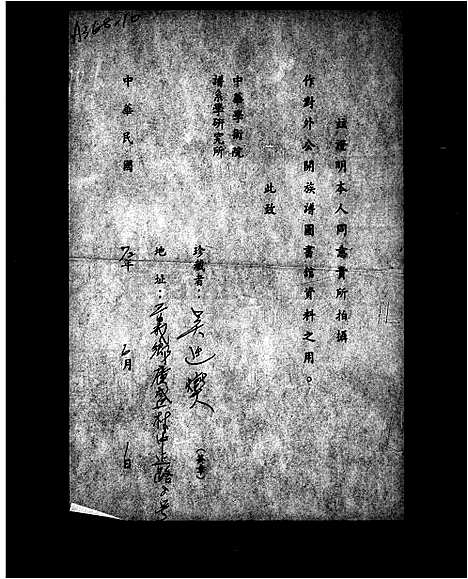 A368-16
茲證明本人同意貴所拍攝
作對外公開族譜圖書館資料之用。
此致
中華學術院
譜系學研究所
珍藏者：吳迅燮（簽章）
地址：三義鄉廣盛村中正路
中華民國 年 月 日